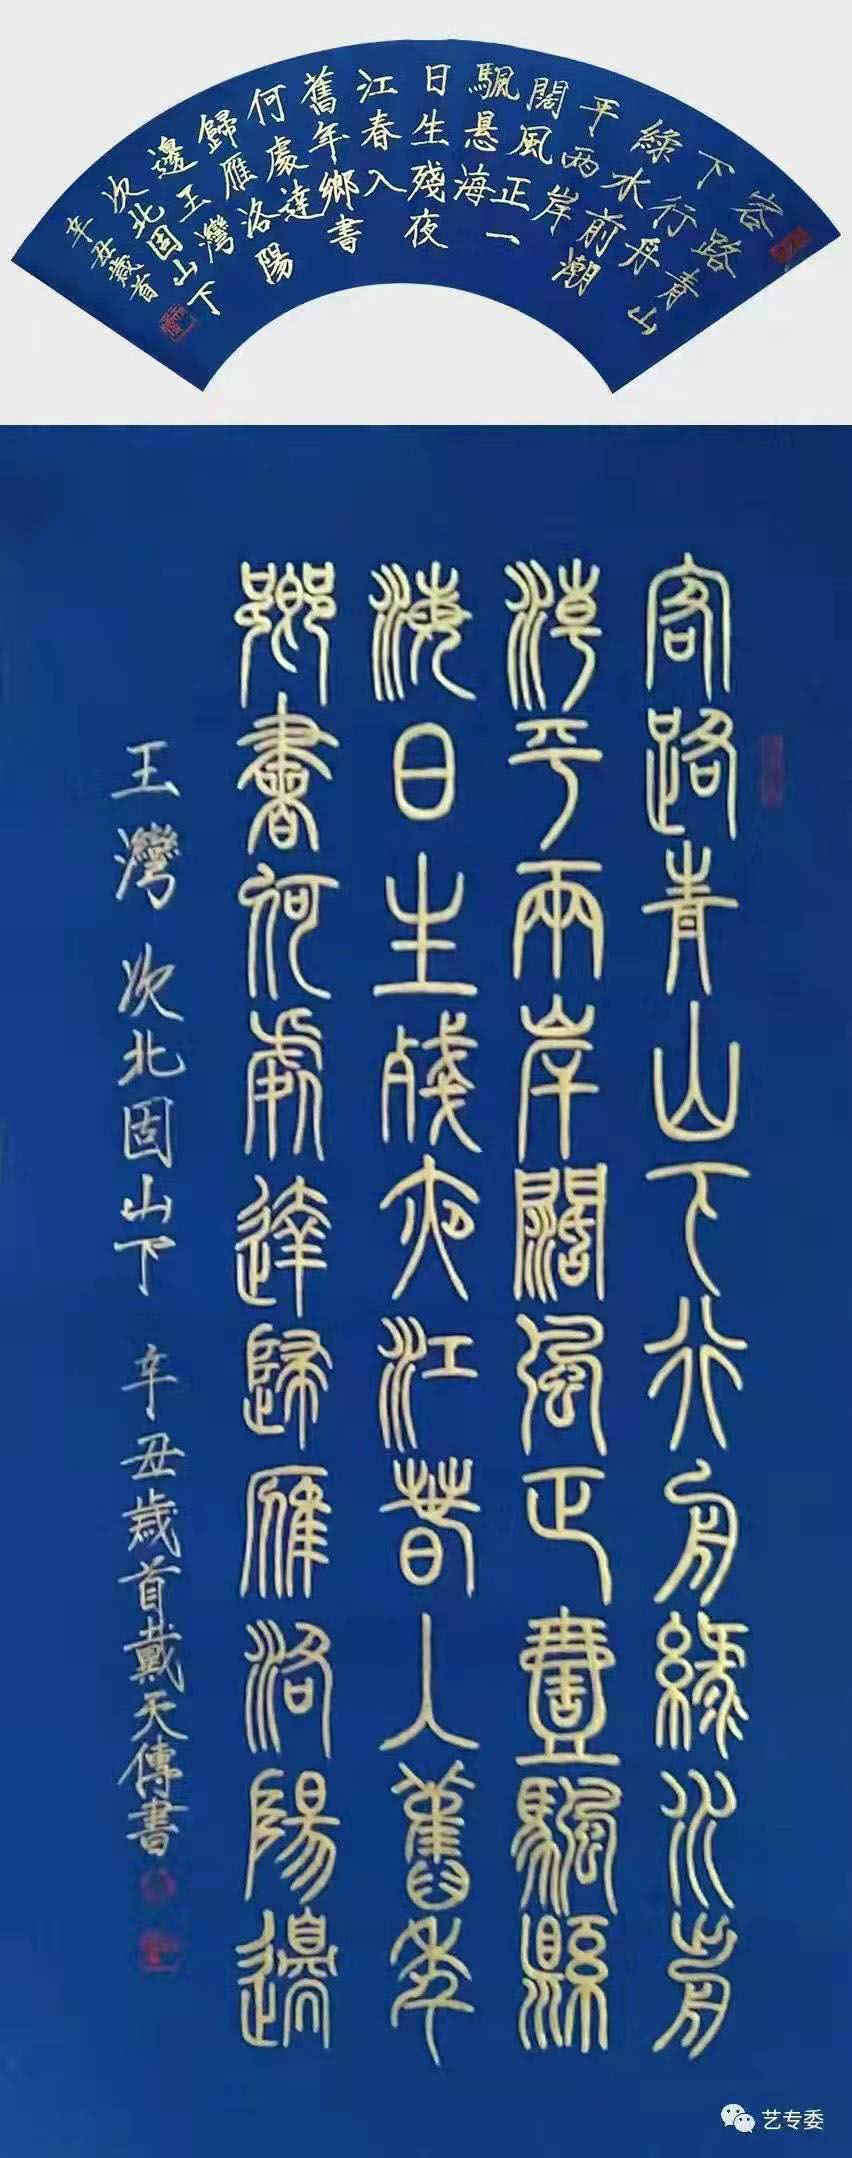 客路青山
下行舟
綠水前潮
平兩岸
闊風正一
颿悬海
日生殘夜
江春入
舊年鄉書
何處達
歸雁洛陽
邊王灣
次北固山下
辛丑歲首
客路青山下行舟綠水前
潮平兩岸闊風正壹颿縣
海日生殘夜江春入舊年
鄉書何處達歸雁洛陽邊
王灣 次北固山下 辛丑歲首戴天傳書
艺专委